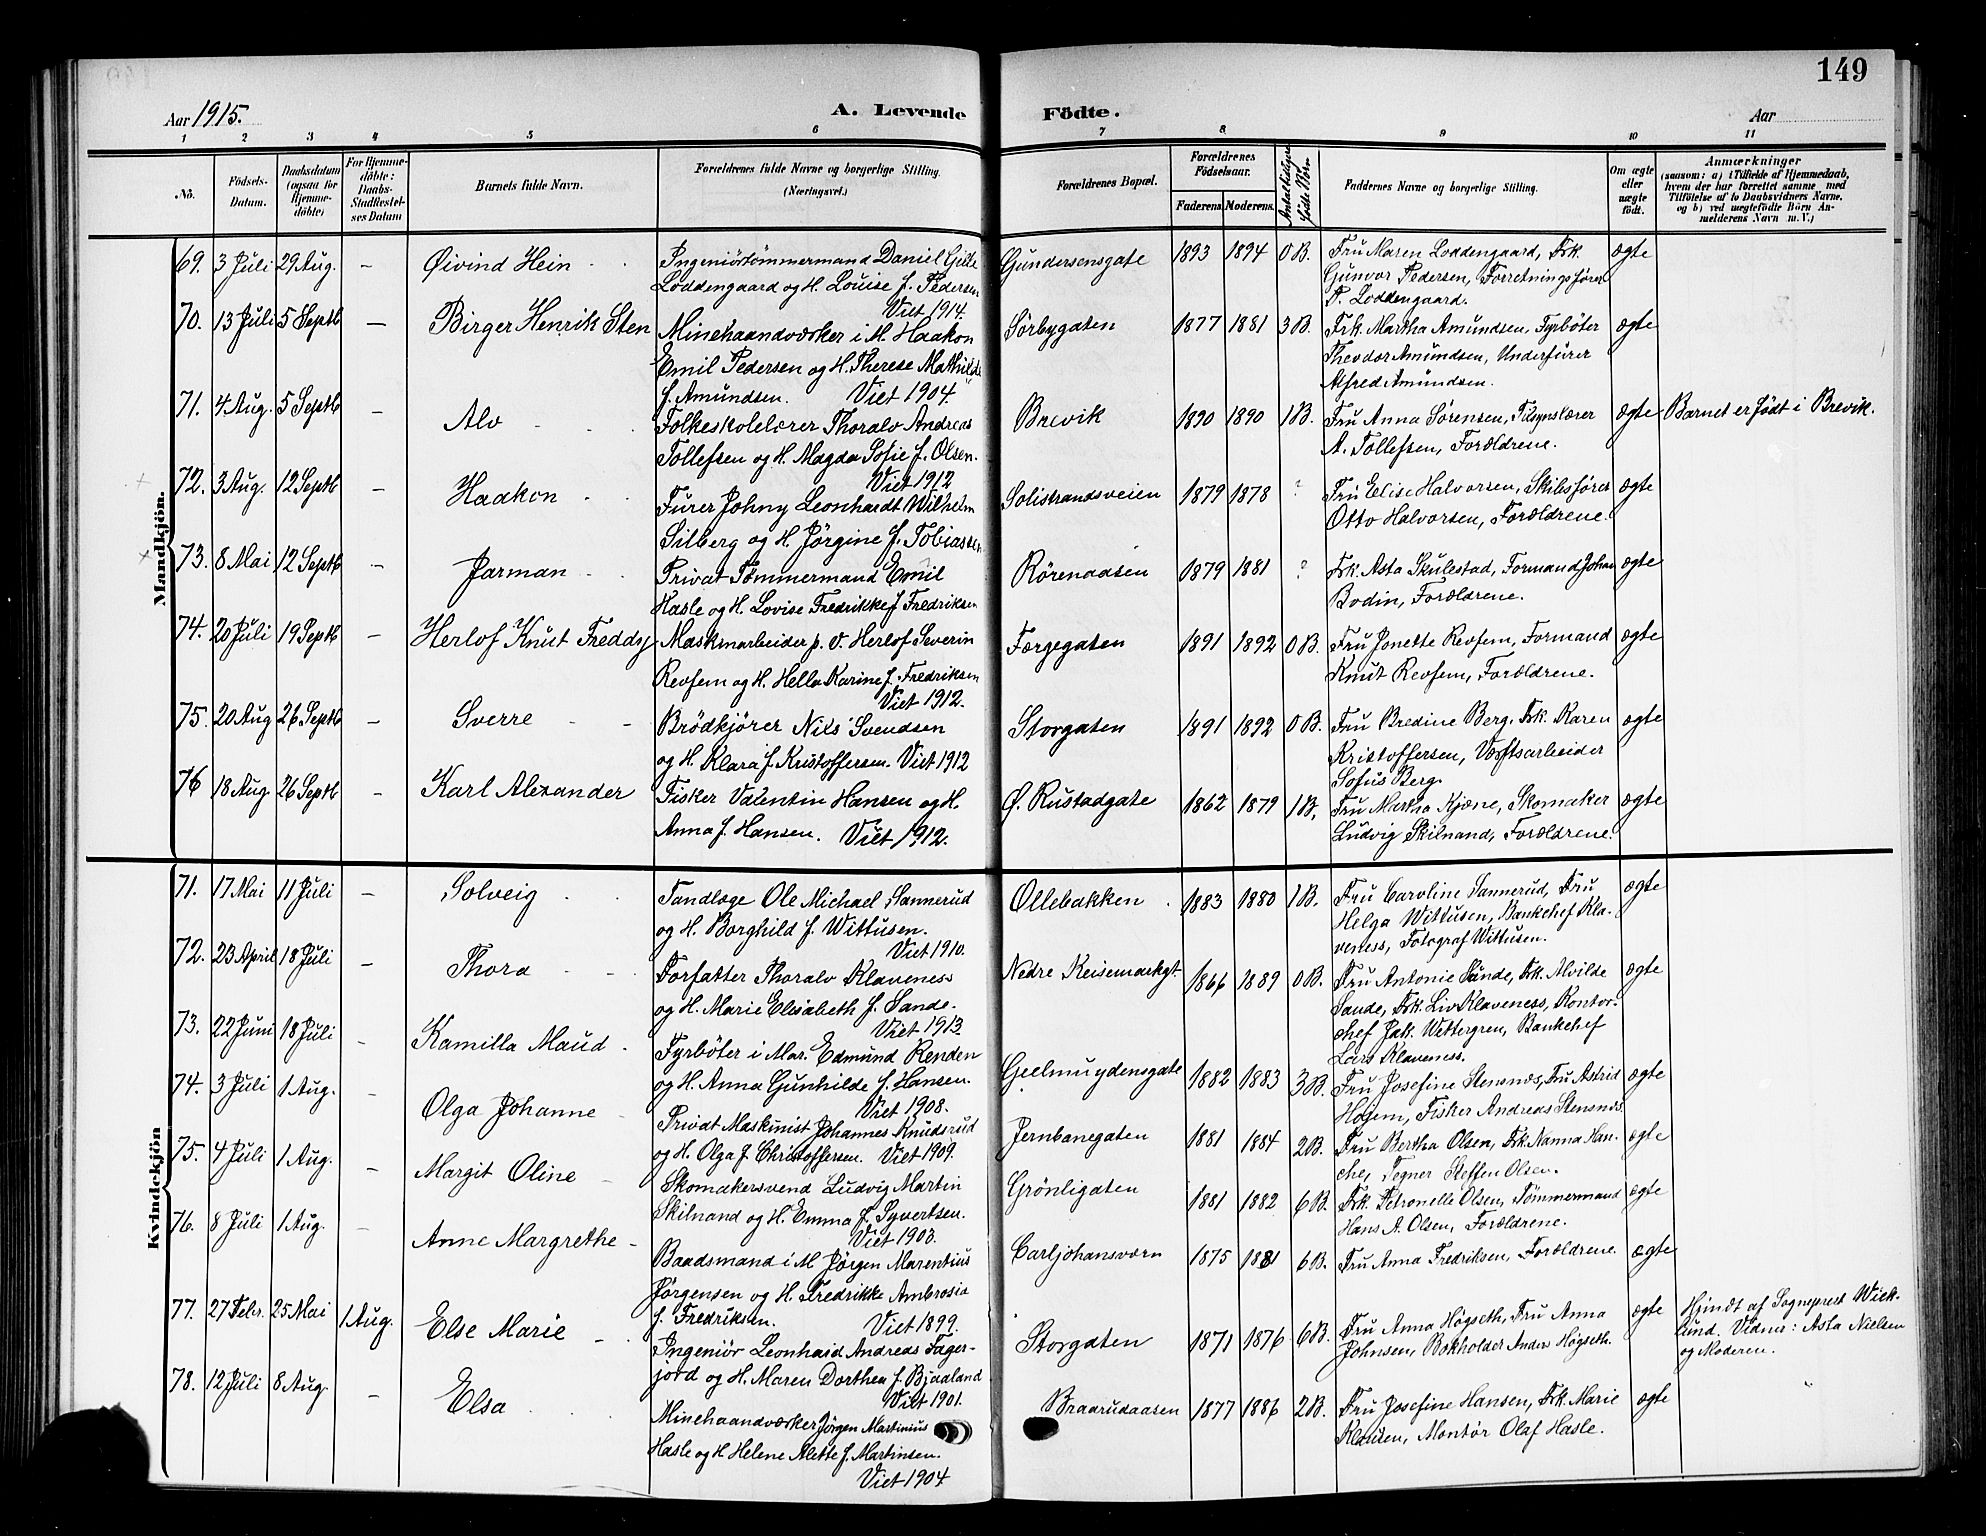 149
Aar 1915.
A. Levende Födte.
Aar
1 2 3 4 5 6 7 8 9 10 11
No.
Födsels-Datum.
Daabsdatum (ogsaa for Hjemme-döbte)
For Hjemme-döbte: Daabs-Stadfæstel-ses Datum
Barnets fulde Navn.
Forældrenes fulde Navne og borgerlige Stilling. (Næringsvei.)
Forældrenes Bopæl.
Forældrenes Födselsaar.
Faderens. Moderens.
Faddernes Navne og borgerlige Stilling.
Om ægte eller uægte födt.
Anmærkninger
(saasom: a) i Tilfælde af Hjemmedaab, hvem der har forrettet samme, med Tilföielse af to Daabsvidners Navne, og b) ved uægtefödte Börn An-melderens Navn m. V.)
Mandkjön.
69. 3 Juli 29 Aug. — Øivind Hein
Ingeniörtömmermand Daniel Gill Loddengaard og H. Louise f. Pedersen Viet 1914.
Gundersensgate 1893 1894 0 B.
Fru Maren Loddengaard, Frk. Gunvor Pedersen, Forretningsfører T. Loddengaard. ægte
70. 13 Juli 5 Septb — Birger Henrik Sten
Minehaandværker i M. Haakon Emil Pedersen og H. Therese Mathilde f. Amundsen. Viet 1904.
Sørbygaten 1877 1881 3 B.
Frk. Martha Amundsen, Fyrbøter Theodor Amundsen, Underfurer Alfred Amundsen. ægte
71. 4 Aug. 5 Septb — Alv
Folkeskolelærer Thoralv Andreas Tollefsen og H. Magda Sofie f. Olsen. Viet 1912
Brevik 1890 1890 1 B.
Fru Anna Sørensen, Tilsynslærer A. Tollefsen, Forældrene. ægte Barnet er født i Brevik.
72. 3 Aug. 12 Septb — Haakon
Furer Johny Leonhardt Wilhelm Silberg og H. Jørgine f. Tobiassen
Solistrandsveien 1879 1878 ?
Fru Elise Halvorsen, Skibsfører Otto Halvorsen, Forældrene. ægte
73. 8 Mai 12 Septb — Jarman
Privat Tømmermand Emil Hasle og H. Lovise Fredrikke f. Fredriksen
Rørenaasen 1879 1881 ?
Frk. Asta Skulestad, Formand Johan Bodin, Forældrene. ægte
74. 20 Juli 19 Septb — Herlof Knut Freddy
Maskinarbeider p. V. Herlof Severin Revfem og H. Hella Karine f. Fredriksen Viet 1912.
Færgegaten 1891 1892 0 B.
Fru Jonette Revfem, Formand Knut Revfem, Forældrene. ægte
75. 20 Aug 26 Septb — Sverre
Brödkjörer Nils Svendsen og H. Klara f. Kristoffersen. Viet 1912
Storgaten 1891 1892 0 B.
Fru Bredine Berg. Frk. Karen Kristoffersen, Værftsarbeider Sofus Berg. ægte
76 18 Aug. 26 Septb — Karl Alexander
Fisker Valentin Hansen og H. Anna f. Hansen. Viet 1912.
Ø. Rustadgate 1862 1879 1 B,
Fru Martha Kjæne, Skomaker Ludvig Skilnand, Forældrene. ægte
Kvindekjön
71. 17 Mai 11 Juli — Solveig
Tandlæge Ole Michael Sannerud og H. Borghild f. Wittusen. Viet 1910.
Ollebakken 1883 1880 1 B.
Fru Caroline Sannerud, Fru Helga Wittusen, Bankchef Kla-veness, Fotograf Wittusen. ægte
72. 23 April 18 Juli — Thora
Forfatter Thoralv Klaveness og H. Marie Elisabeth f. Sande. Viet 1913.
Nedre Keisemarkgt. 1866 1889 0 B.
Fru Antonie Sande, Frk. Alvilde Sande, Frk. Liv Klaveness, Kontor-chef Jak. Wettergren, Bankchef Lars Klaveness. ægte
73. 22 Juni 18 Juli — Kamilla Maud
Fyrbøter i Mar. Edmund Renden og H. Anna Gunhilde f. Hansen. Viet 1908.
Geelmuydensgate 1882 1883 3 B.
Fru Josefine Stensnæs, Fru Astrid Hogem, Fisker Andreas Stensnæs. ægte
74. 3 Juli 1 Aug. — Olga Johanne
Privat Maskinist Johannes Knudsrud og H. Olga f. Christoffersen. Viet 1909.
Jernbanegaten 1881 1884 2 B.
Fru Bertha Olsen, Frk. Nanna Han-che, Tegner Steffen Olsen. ægte
75. 4 Juli 1 Aug. — Margit Oline
Skomakersvend Ludvig Martin Skilnand og H. Emma f. Syvertsen. Viet 1903.
Grönligaten 1881 1882 6 B.
Frk. Petronelle Olsen, Tömmermand Hans A. Olsen, Forældrene. ægte
76. 8 Juli 1 Aug. — Anne Margrethe
Baadsmand i M Jørgen Marentius Jørgensen og H. Fredrikke Ambrosia f. Fredriksen. Viet 1899.
Carljohansværn 1875 1881 6 B.
Fru Anna Fredriksen, Forældrene. ægte
77. 27 Febr. 25 Mai 1 Aug. Else Marie
Ingeniör Leonhard Andreas Fager-jord og H. Maren Dorthea f. Bjaaland Viet 1901.
Storgaten 1871 1876 6 B.
Fru Anna Høgseth, Fru Anna Johnsen, Bokholder Anders Høgseth. ægte
Hjmdt af Sogneprest Wiek-lund. Vidner: Asta Nielsen og Moderen.
78. 12 Juli 8 Aug. — Elsa
Minehaandværker Jørgen Martinius Hasle og H Helene Alette f. Martinsen. Viet 1904
Braarudaasen 1877 1886 2 B.
Fru Josefine Hansen, Frk. Marie Klausen, Montør Olaf Hasle. ægte